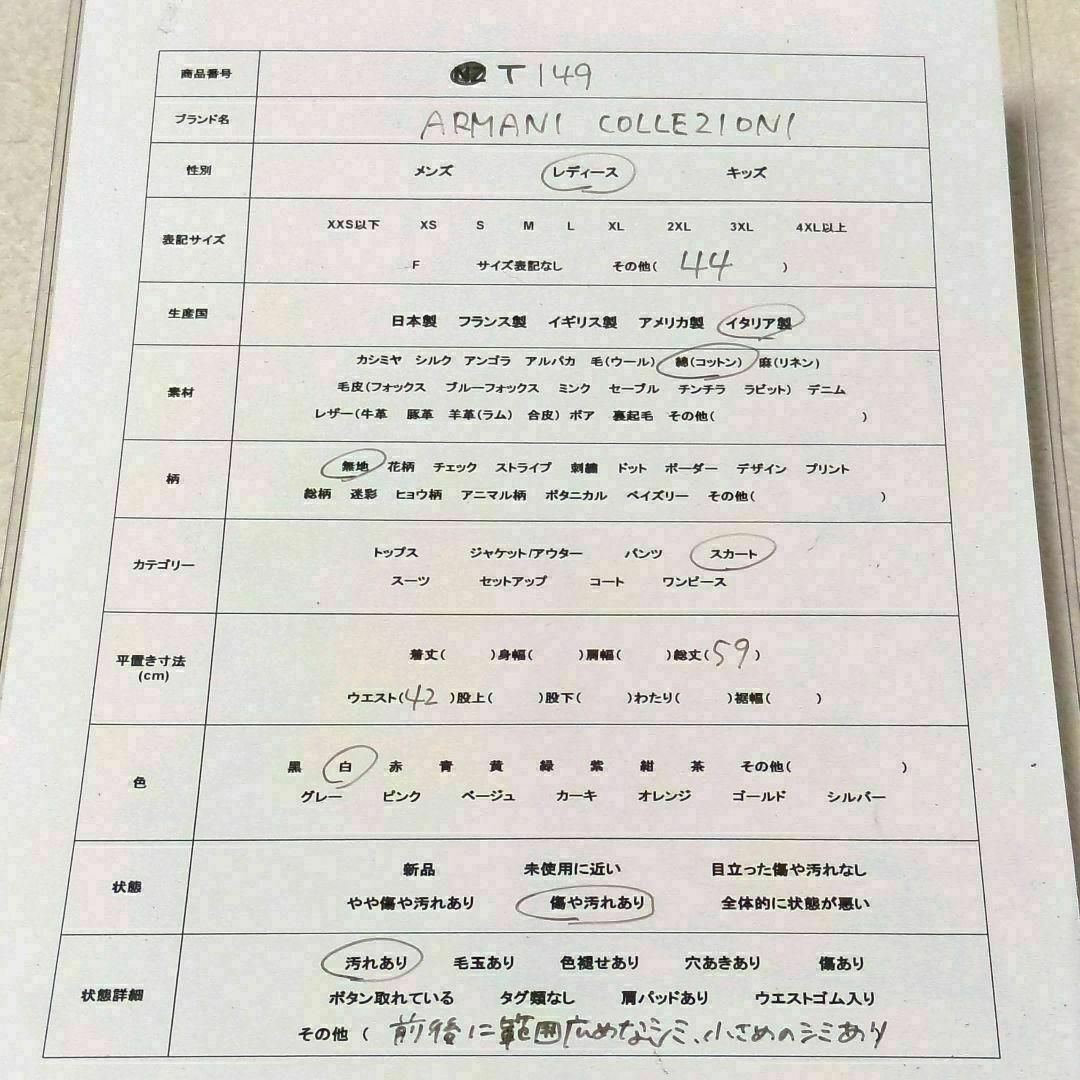 商品番号 T149
ブランド名 ARMANI COLLEZIONI
性別 メンズ レディース キッズ
表記サイズ
XXS以下 XS S M L XL 2XL 3XL 4XL以上
F サイズ表記なし その他( 44 )
生産国 日本製 フランス製 イギリス製 アメリカ製 イタリア製
素材
カシミヤ シルク アンゴラ アルパカ 毛(ウール) 綿(コットン) 麻(リネン)
毛皮(フォックス ブルーフォックス ミンク セーブル チンチラ ラビット) デニム
レザー(牛革 豚革 羊革(ラム) 合皮) ボア 裏起毛 その他( )
柄
無地 花柄 チェック ストライプ 刺繍 ドット ボーダー デザイン プリント
総柄 迷彩 ヒョウ柄 アニマル柄 ボタニカル ペイズリー その他( )
カテゴリー
トップス ジャケット/アウター パンツ スカート
スーツ セットアップ コート ワンピース
平置き寸法
(cm)
着丈( )身幅( )肩幅( )総丈(59)
ウエスト(42)股上( )股下( )わたり( )裾幅( )
色
黒 白 赤 青 黄 緑 紫 紺 茶 その他( )
グレー ピンク ベージュ カーキ オレンジ ゴールド シルバー
状態
新品 未使用に近い 目立った傷や汚れなし
やや傷や汚れあり 傷や汚れあり 全体的に状態が悪い
状態詳細
汚れあり 毛玉あり 色褪せあり 穴あきあり 傷あり
ボタン取れている タグ類なし 肩パッドあり ウエストゴム入り
その他 ( 前後に範囲広めなシミ、小さめのシミあり